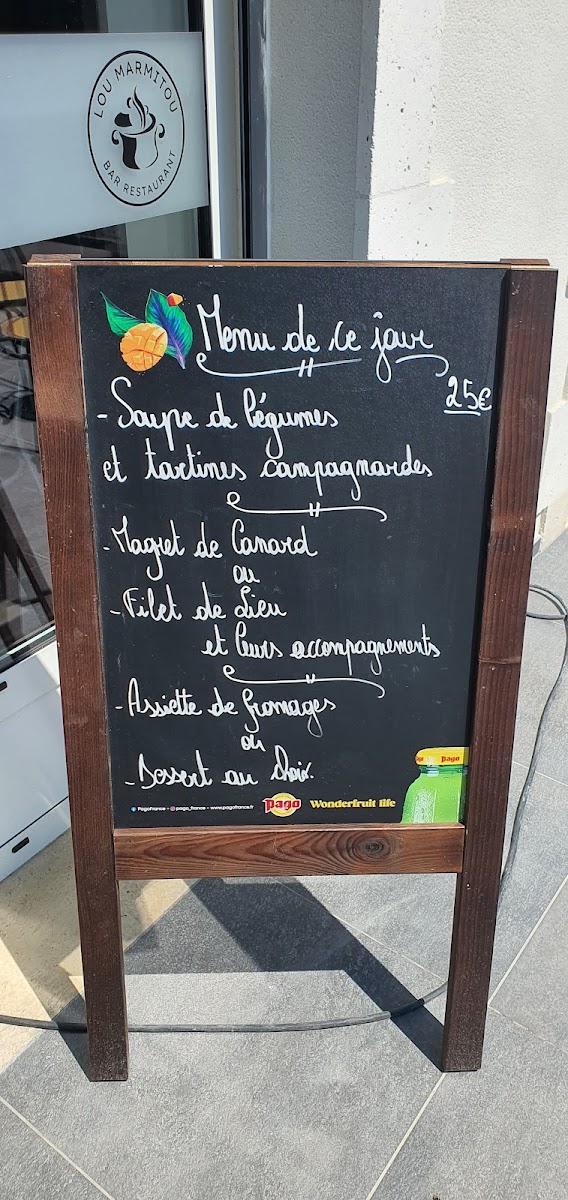 LOU MARMITOU
BAR RESTAURANT
Menu de ce jour
25€
- Soupe de légumes
et tartines campagnardes
- Magret de Canard
ou
- Filet de Lieu
et leurs accompagnements
- Assiette de fromages
ou
- Dessert au choix.
PagoFrance - pago_france - www.pagofrance.fr
Pago
Wonderfruit life
Pago